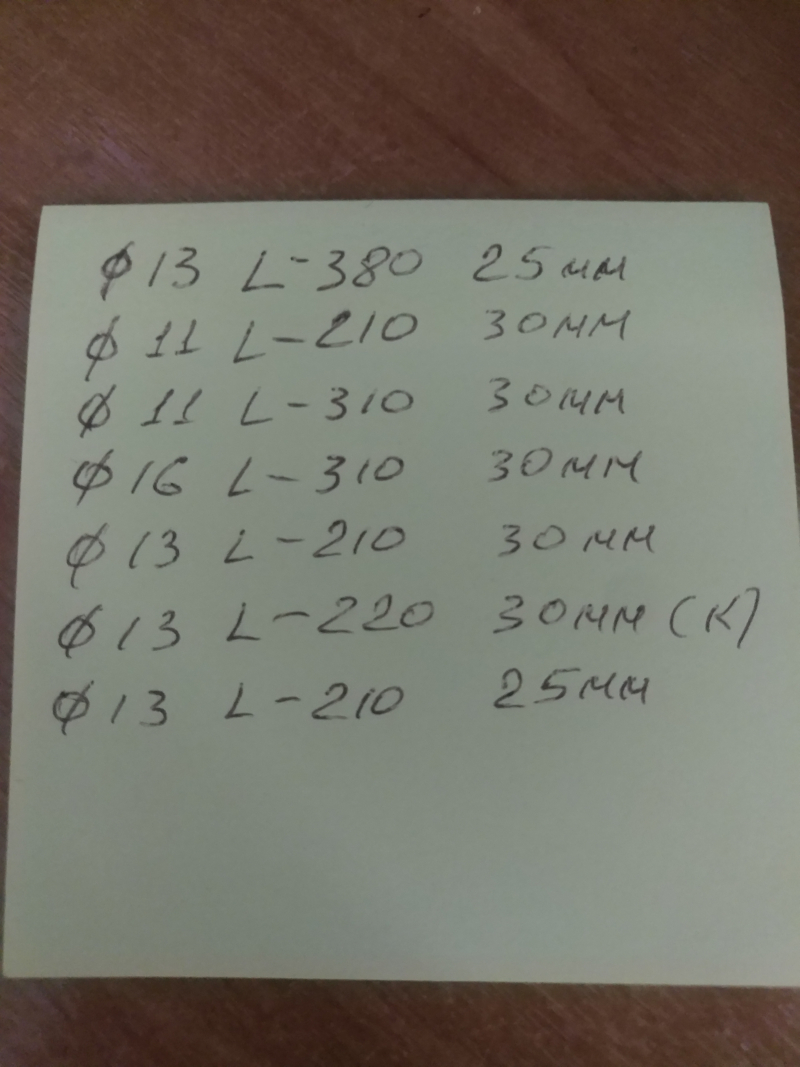 ϕ 13 L-380 25мм
ϕ 11 L-210 30мм
ϕ 11 L-310 30мм
ϕ 16 L-310 30мм
ϕ 13 L-210 30мм
ϕ 13 L-220 30мм (К)
ϕ 13 L-210 25мм